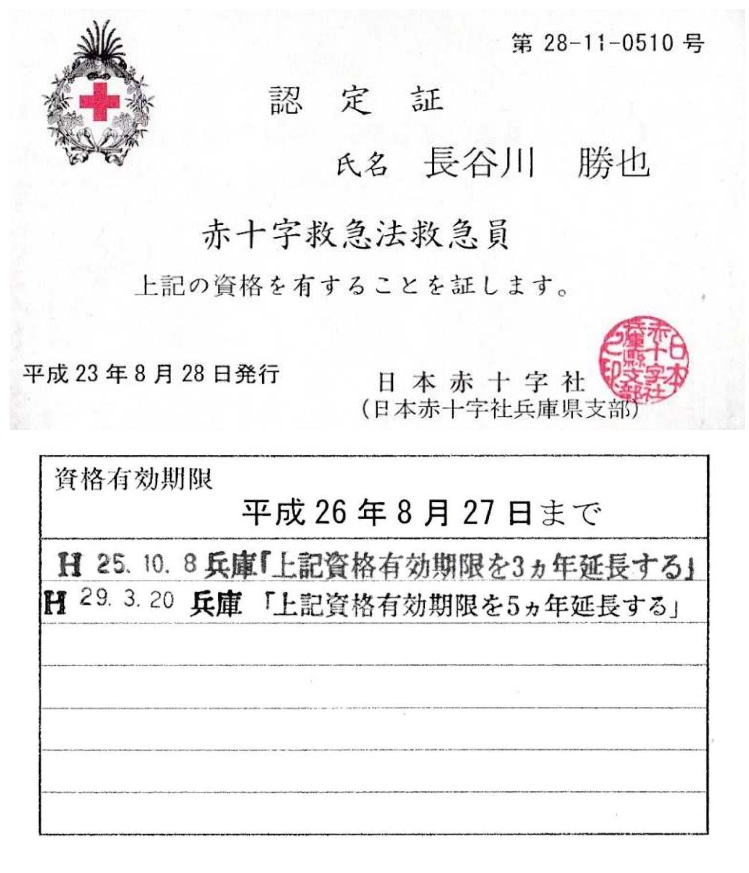 第 28-11-0510 号
認定証
氏名 長谷川 勝也
赤十字救急法救急員
上記の資格を有することを証します。
平成 23 年 8 月 28 日発行
日本赤十字社
(日本赤十字社兵庫県支部)
日本
赤十字社
兵庫県支部
之印
資格有効期限
平成 26 年 8 月 27 日まで
H 25. 10. 8 兵庫「上記資格有効期限を3ヵ年延長する」
H 29. 3. 20 兵庫 「上記資格有効期限を5ヵ年延長する」